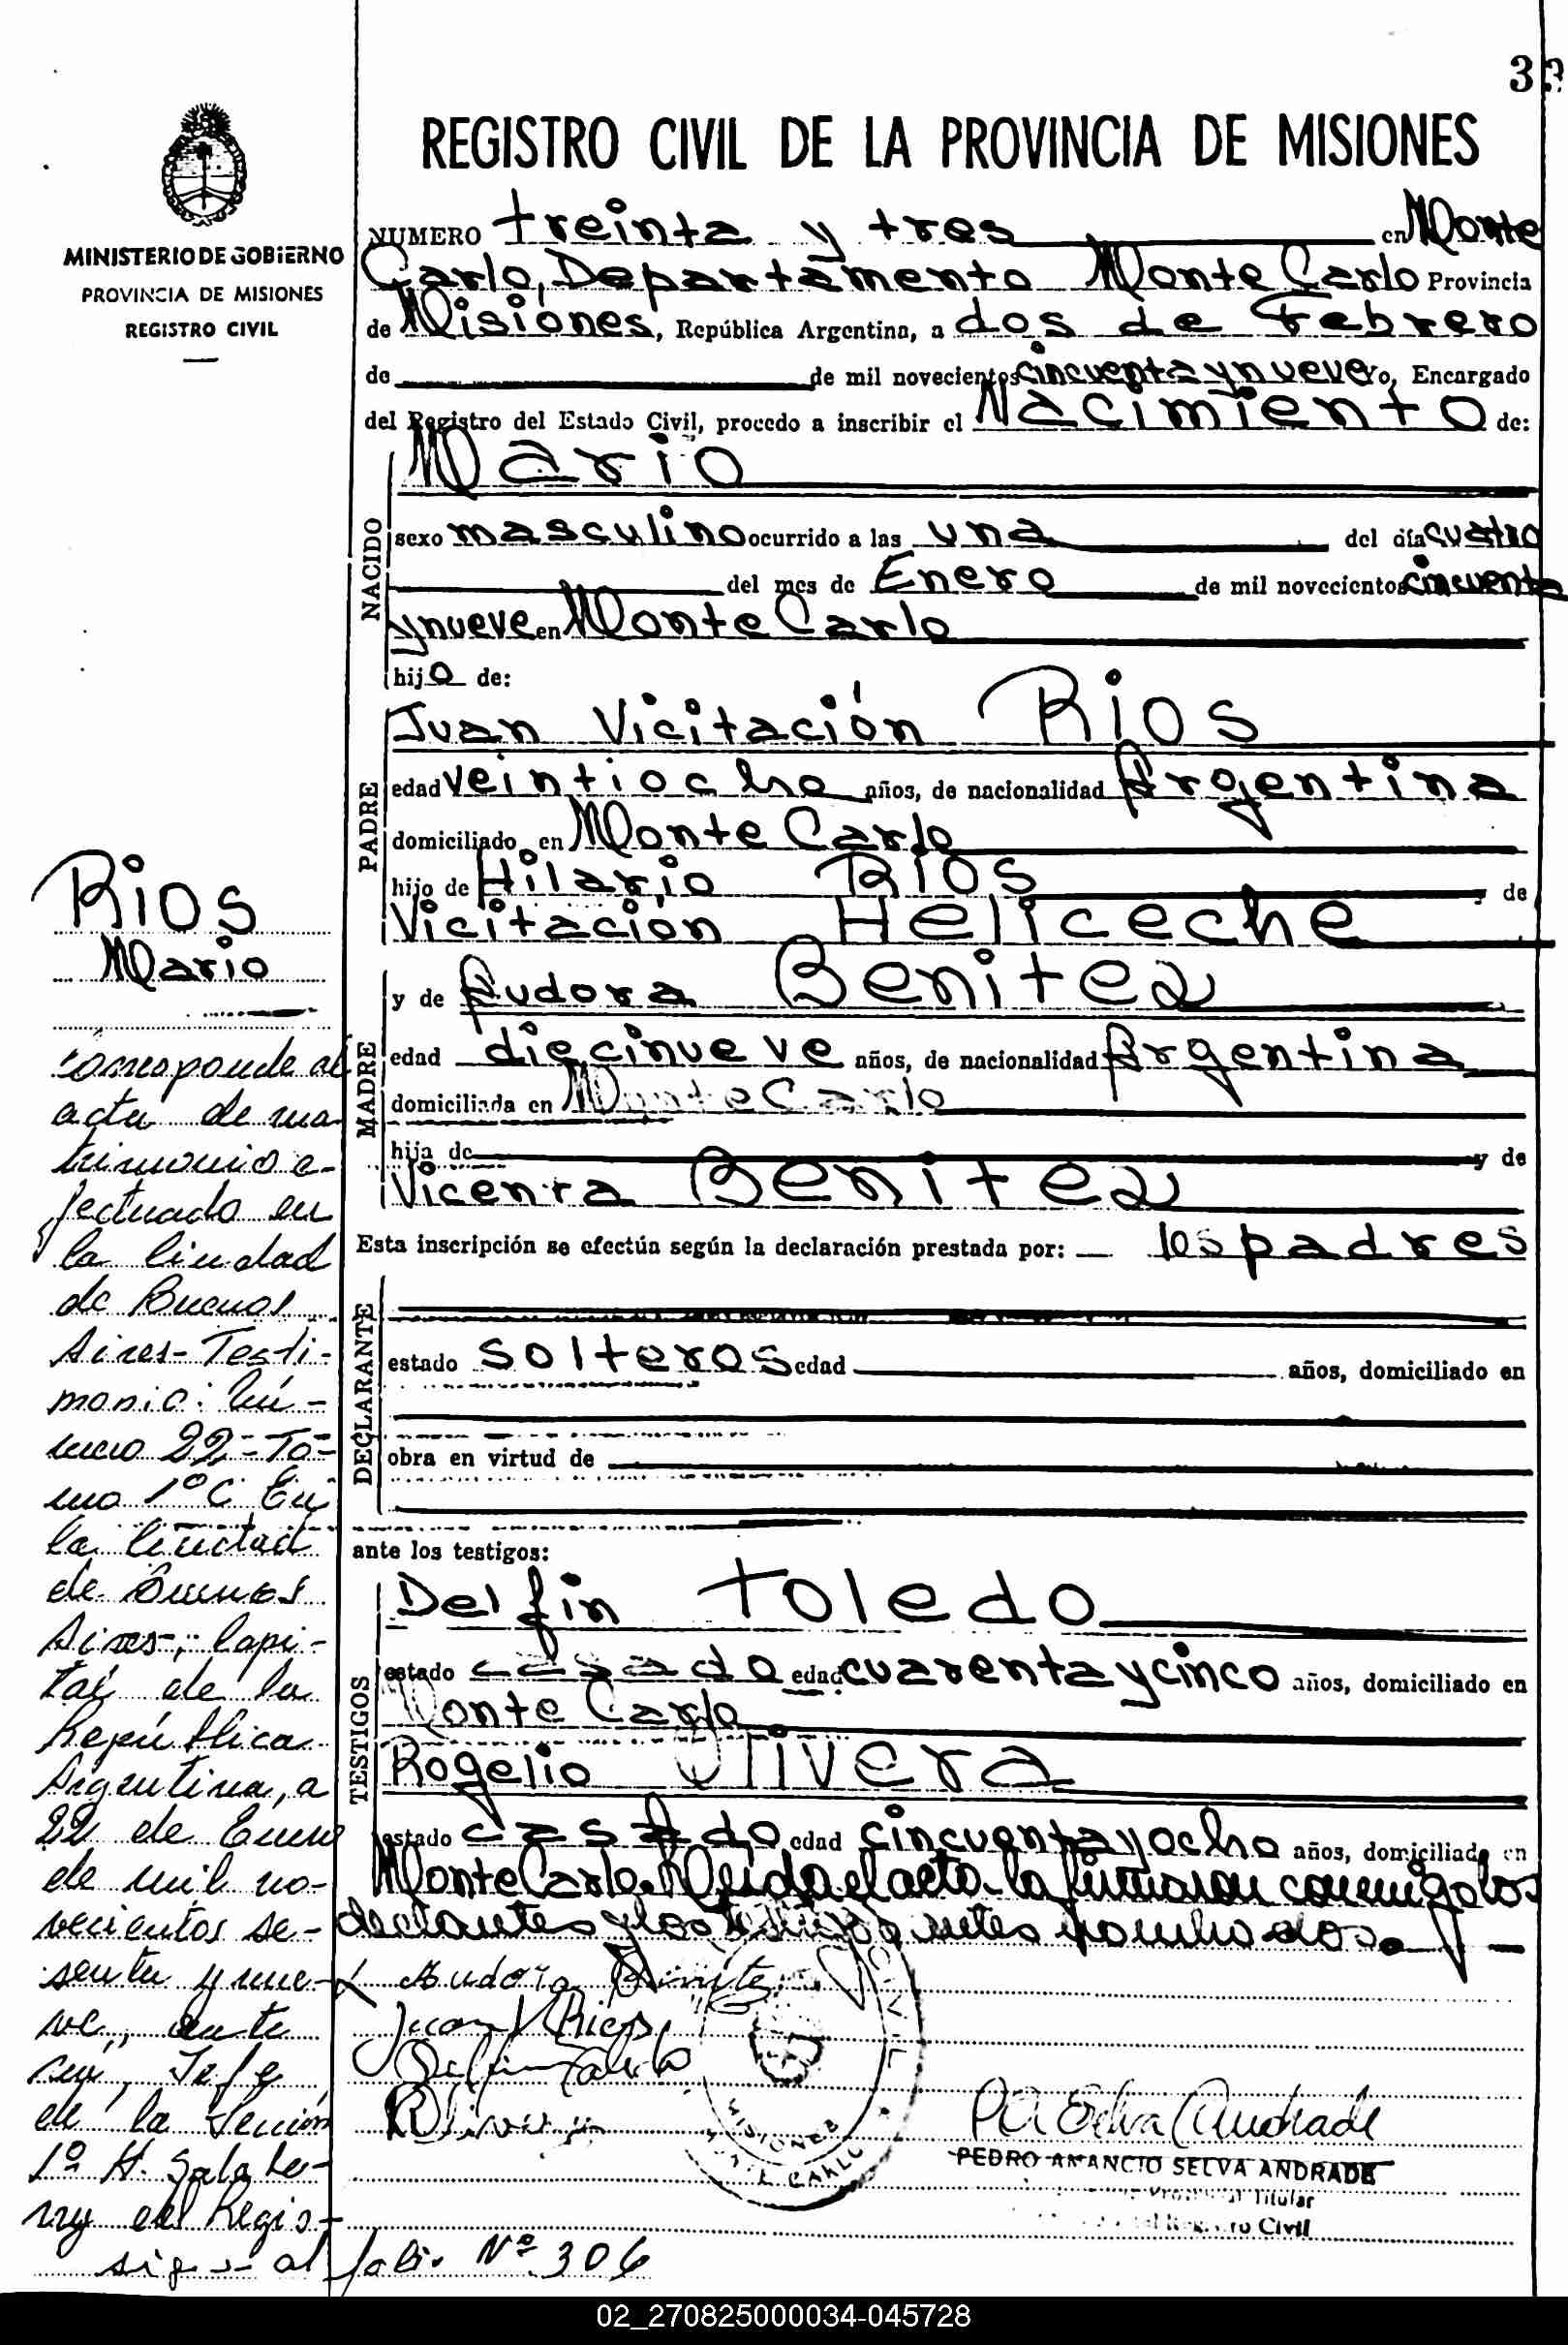 33
REGISTRO CIVIL DE LA PROVINCIA DE MISIONES
MINISTERIO DE GOBIERNO
PROVINCIA DE MISIONES
REGISTRO CIVIL
NUMERO treinta y tres en Monte
Carlo, Departamento Monte Carlo Provincia
de Misiones, República Argentina, a dos de Febrero
de de mil novecientos cincuenta y nueve Yo, Encargado
del Registro del Estado Civil, procedo a inscribir el Nacimiento de:
NACIDO
Mario
sexo masculino ocurrido a las una del día cuatro
del mes de Enero de mil novecientos cincuenta
y nueve en Monte Carlo
hijo de:
PADRE
Juan Vicitación Rios
edad veintiocho años, de nacionalidad Argentina
domiciliado en Monte Carlo
hijo de Hilario Rios y de
Vicitación Heliceche
MADRE
y de Audora Benitez
edad diecinueve años, de nacionalidad Argentina
domiciliada en Monte Carlo
hija de y de
Vicenta Benitez
Esta inscripción se efectúa según la declaración prestada por: los padres
DECLARANTE
estado solteros edad años, domiciliado en
obra en virtud de
ante los testigos:
TESTIGOS
Delfin Toledo
estado casado edad cuarenta y cinco años, domiciliado en
Monte Carlo
Rogelio Olivera
estado casado edad cincuenta y ocho años, domiciliado en
Monte Carlo. Leida el acta la firmaron conmigo los
declantes y los testigos antes nombrados.
Audora Benitez
Juan V Rios
Delfin Toledo
R Olivera
MISIONES
MONTE CARLO
PA Selva Andrade
PEDRO AMANCIO SELVA ANDRADE
Provincial Titular
del Registro Civil
Rios
Mario
corresponde al
acta de ma-
trimonio e-
fectuado en
la Ciudad
de Buenos
Aires - Testi-
monio: Nú-
mero 22 - To-
mo 1º C En
la Ciudad
de Buenos
Aires, Capi-
tal de la
República
Argentina, a
22 de Enero
de mil no-
vecientos se-
senta y nue-
ve, ante
mí, Jefe
de la Sección
1º H. Salabe-
rry del Regis-
sigue al folio Nº 306
02_270825000034-045728